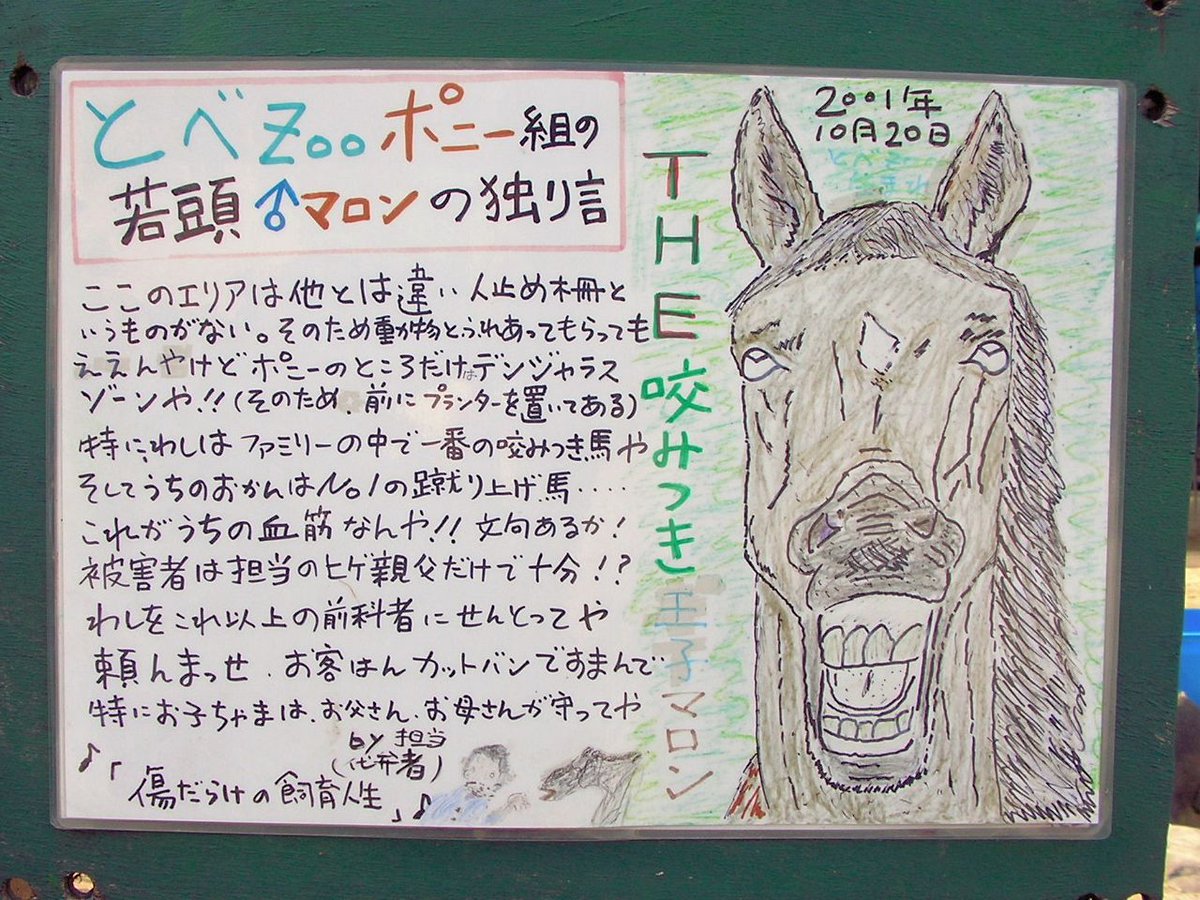 とべZooポニー組の
若頭♂マロンの独り言
ここのエリアは他とは違い人止め柵と
いうものがない。そのため動物とふれあってもらっても
ええんやけどポニーのところだけはデンジャラス
ゾーンや!!(そのため、前にプランターを置いてある)
特にわしはファミリーの中で一番の咬みつき馬や
そしてうちのおかんはNo.1の蹴り上げ馬‥‥
これがうちの血筋なんや!!文句あるか!
被害者は担当のヒゲ親父だけで十分!?
わしをこれ以上の前科者にせんとってや
頼んまっせ、お客はんカットバンですまんで
特にお子ちゃまは、お父さん、お母さんが守ってや
by 担当
(代弁者)
♪「傷だらけの飼育人生」♪
THE咬みつき王子マロン
2001年
10月20日
とべZoo